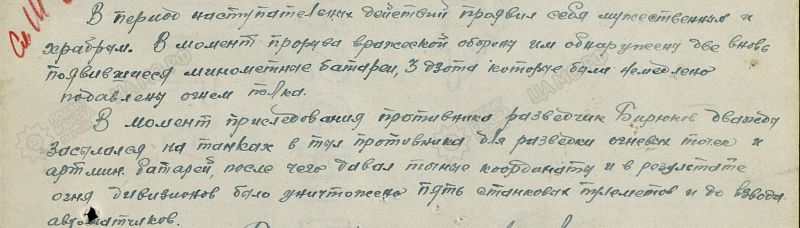 В период наступательных действий проявил себя мужественным и
храбрым. В момент прорыва вражеской обороны им обнаружены две вновь
появившиеся минометные батареи, 3 дзота которые были немедлено
подавлены огнем полка.
В момент приследования противника разведчик Бирюков дважды
засылался на танках в тыл противника для разведки огневых точек и
артмин. батарей, после чего давал точные координаты и в результате
огня дивизионов было уничтожено пять станковых пулеметов и до взвода
автоматчиков.